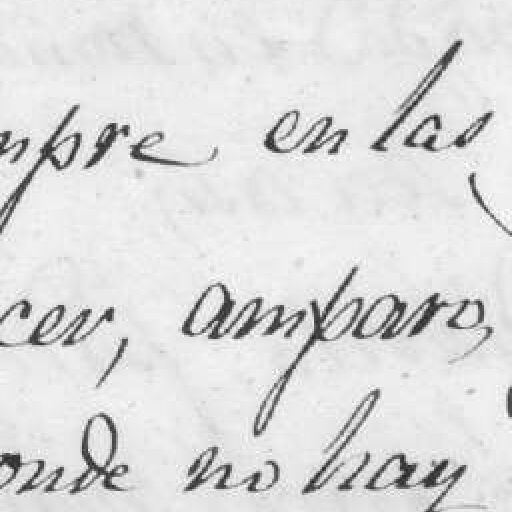 mpre en las
cer, amparo,
onde no hay